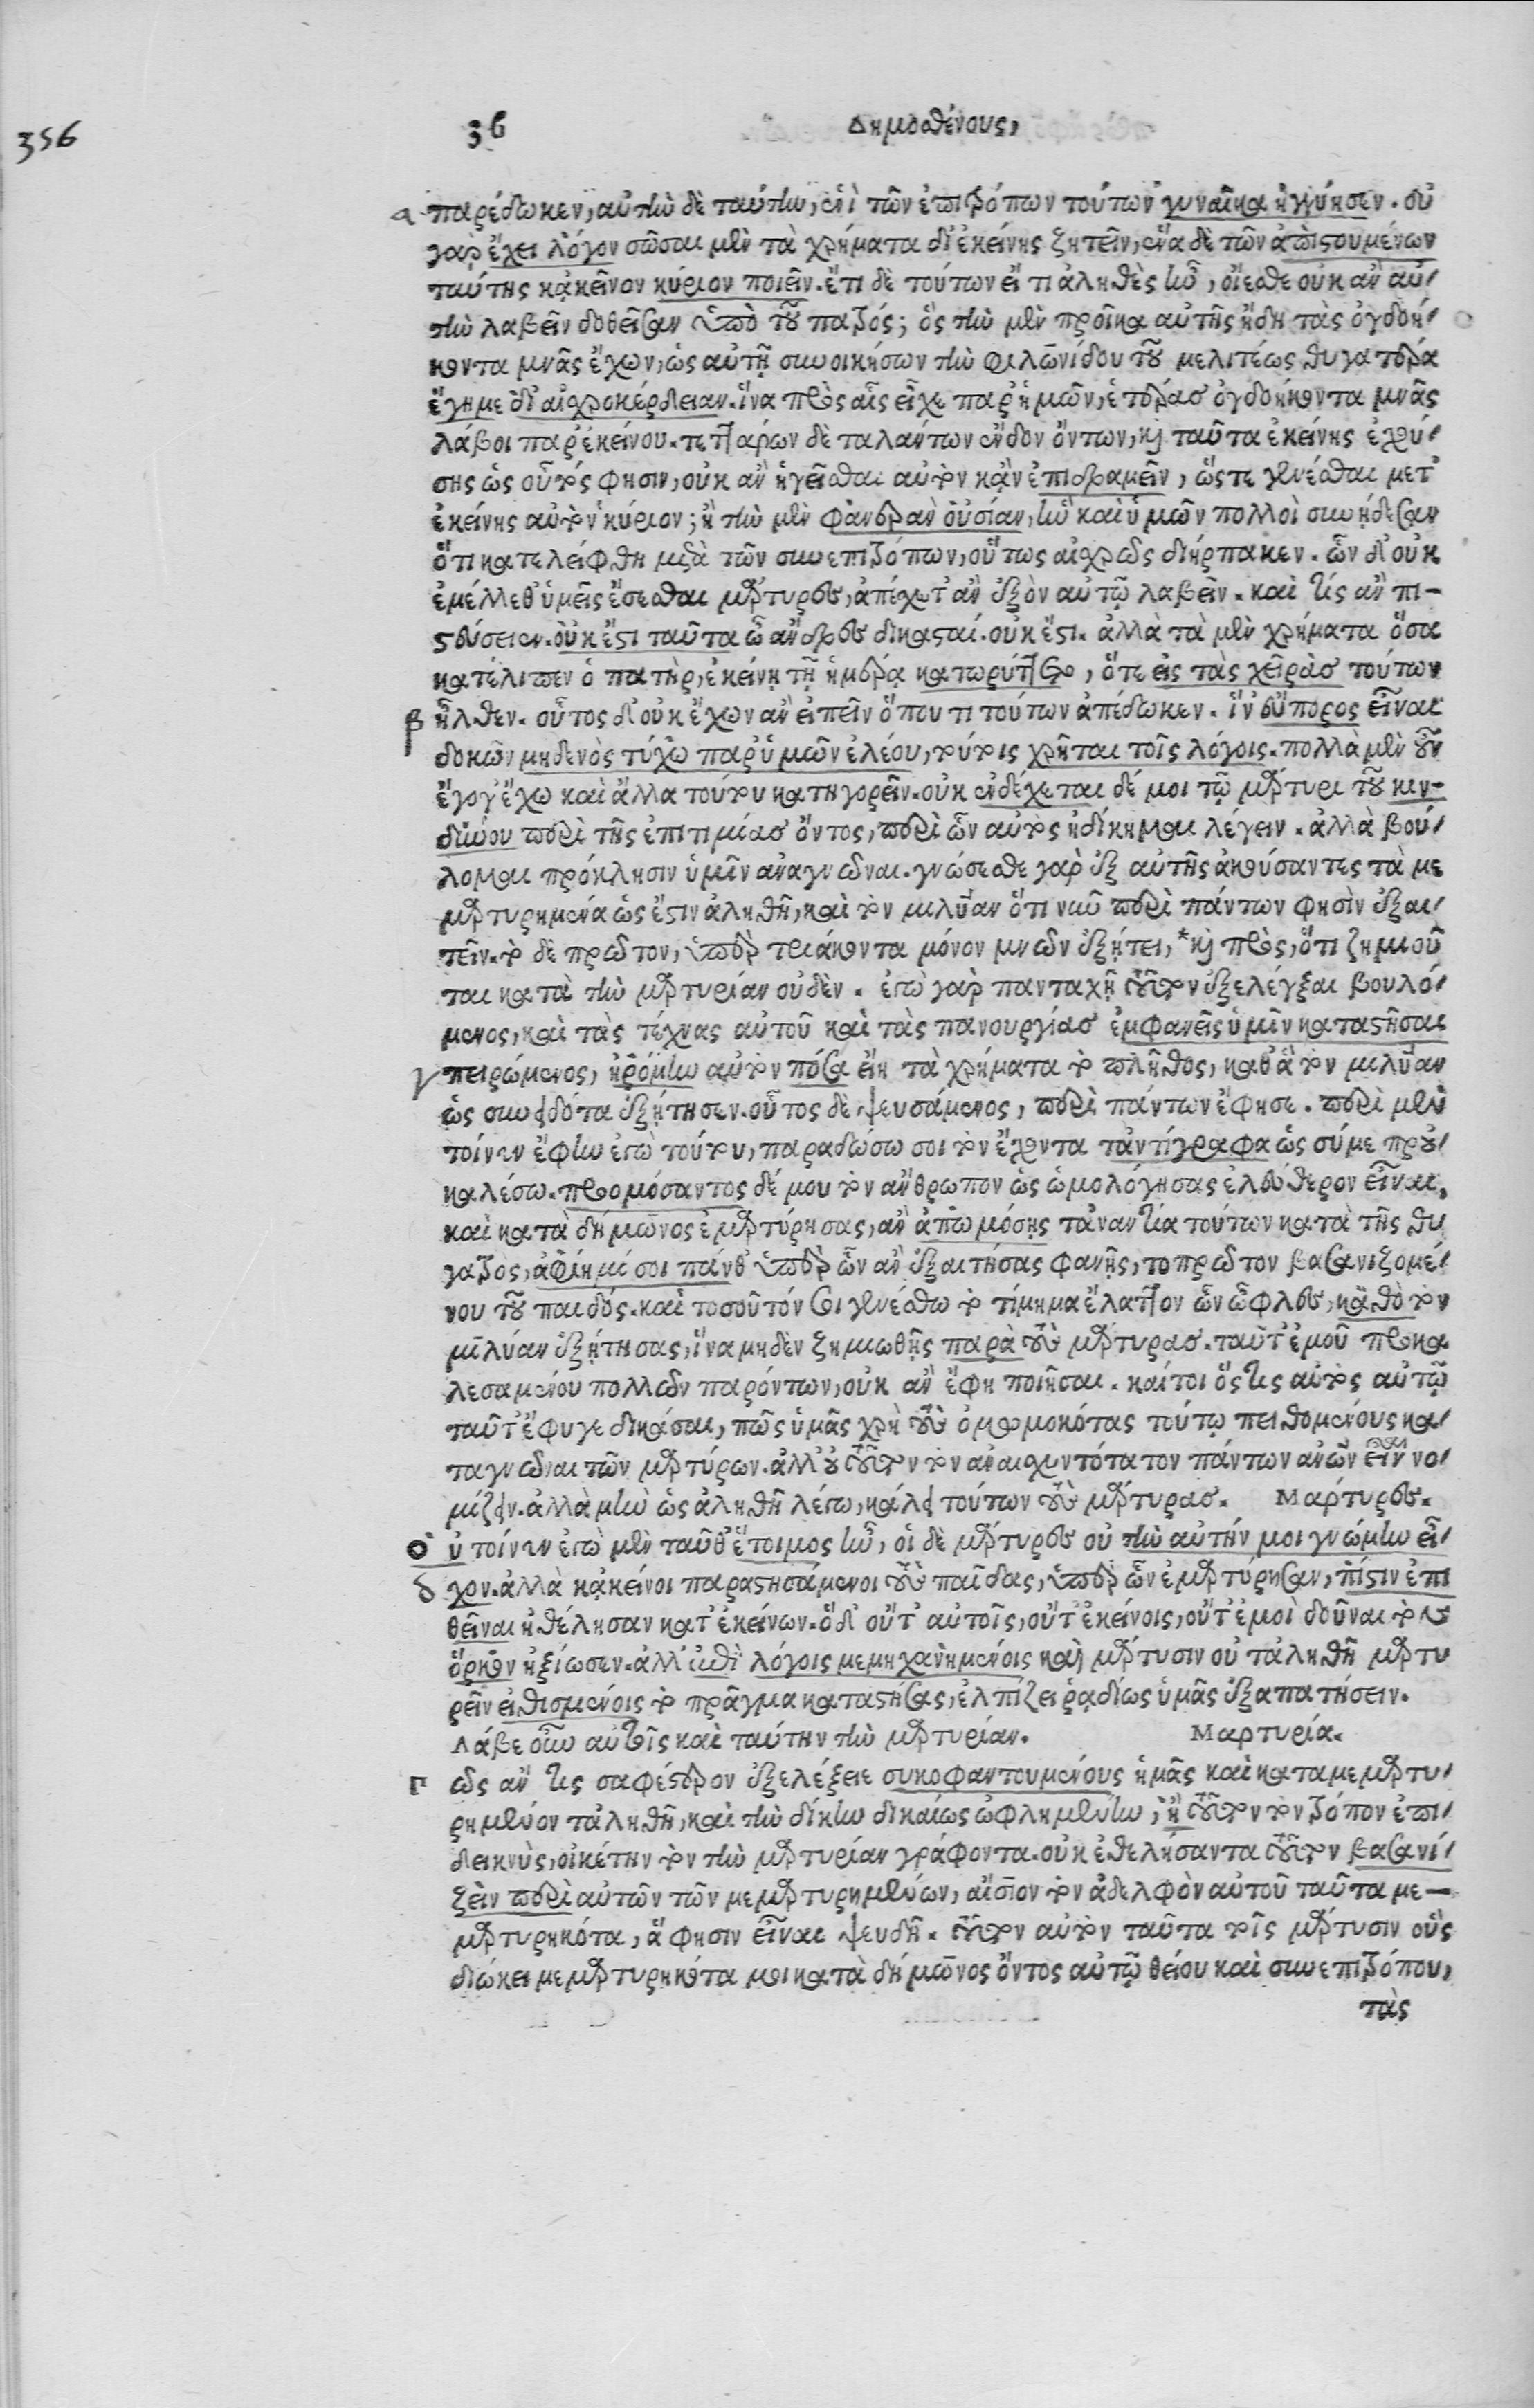 356
36 Δημοσθένους,
α παρέδωκεν, αὐτὴν δὲ ταύτην, ἑνὶ τῶν ἐπιτρόπων τούτων γυναῖκα ἠγγύησεν. οὐ
γὰρ ἔχει λόγον σῶσαι μὲν τὰ χρήματα δι' ἐκείνης ζητεῖν, ἕνα δὲ τῶν ἀπιστουμένων
ταύτης κἀκεῖνον κύριον ποιεῖν. ἔτι δὲ τούτων εἴ τι ἀληθὲς ἦν, οἴεσθε οὐκ ἂν αὐ-
τὴν λαβεῖν δοθεῖσαν ὑπὸ τοῦ πατρός; ὃς τὴν μὲν προῖκα αὐτῆς ἤδη τὰς ὀγδοή-
κοντα μνᾶς ἔχων, ὡς αὐτῇ συνοικήσων τὴν φιλωνίδου τοῦ μελιτέως θυγατέρα
ἔγημε δι' αἰσχροκέρδειαν. ἵνα πρὸς αἷς εἶχε παρ' ἡμῶν, ἑτέρας ὀγδοήκοντα μνᾶς
λάβοι παρ' ἐκείνου. τεττάρων δὲ ταλάντων ἔνδον ὄντων, καὶ ταῦτα ἐκείνης ἐχού-
σης ὡς οὗτός φησιν, οὐκ ἂν ἡγεῖσθαι αὐτὸν κἂν ἐπιδραμεῖν, ὥστε γενέσθαι μετ'
ἐκείνης αὐτὸν κύριον; ἢ τὴν μὲν φανερὰν οὐσίαν, ἣν καὶ ὑμῶν πολλοὶ συνῄδεσαν
ὅτι κατελείφθη μετὰ τῶν συνεπιτρόπων, οὕτως αἰσχρῶς διήρπακεν. ὧν δ' οὐκ
ἐμέλλεθ' ὑμεῖς ἔσεσθαι μάρτυρες, ἀπέσχετ' ἂν ἐξὸν αὐτῷ λαβεῖν. καὶ τίς ἂν πι-
στεύσειεν. οὐκ ἔστι ταῦτα ὦ ἄνδρες δικασταί. οὐκ ἔστι. ἀλλὰ τὰ μὲν χρήματα ὅσα
κατέλιπεν ὁ πατὴρ, ἐκείνῃ τῇ ἡμέρᾳ κατωρύττετο, ὅτε εἰς τὰς χεῖρας τούτων
β ἦλθεν. οὗτος δ' οὐκ ἔχων ἂν εἰπεῖν ὅπου τι τούτων ἀπέδωκεν. ἵν' εὔπορος εἶναι
δοκῶν μηδενὸς τύχῃ παρ' ὑμῶν ἐλέου, τούτοις χρῆται τοῖς λόγοις. πολλὰ μὲν οὖν
ἔγωγ' ἔχω καὶ ἄλλα τούτου κατηγορεῖν. οὐκ ἐνδέχεται δέ μοι τῷ μάρτυρι τοῦ κιν-
δύνου περὶ τῆς ἐπιτιμίας ὄντος, περὶ ὧν αὐτὸς ἠδίκημαι λέγειν. ἀλλὰ βού-
λομαι πρόκλησιν ὑμῖν ἀναγνῶναι. γνώσεσθε γὰρ ἐξ αὐτῆς ἀκούσαντες τὰ με
μαρτυρημένα ὡς ἔστιν ἀληθῆ, καὶ τὸν μιλύαν ὅτι νῦν περὶ πάντων φησὶν ἐξαι-
τεῖν. τὸ δὲ πρῶτον, ὑπὲρ τριάκοντα μόνον μνῶν ἐξῄτει, *καὶ πρὸς, ὅτι ζημιοῦ
ται κατὰ τὴν μαρτυρίαν οὐδὲν. ἐγὼ γὰρ πανταχῇ τοῦτον ἐξελέγξαι βουλό-
μενος, καὶ τὰς τέχνας αὐτοῦ καὶ τὰς πανουργίας ἐμφανεῖς ὑμῖν καταστῆσαι
γ πειρώμενος, ἠρόμην αὐτὸν πόσα εἴη τὰ χρήματα τὸ πλῆθος, καθ' ἃ τὸν μιλύαν
ὡς συνειδότα ἐξῄτησεν. οὗτος δὲ ψευσάμενος, περὶ πάντων ἔφησε. περὶ μὲν
τοίνυν ἔφην ἐγὼ τούτου, παραδώσω σοι τὸν ἔχοντα τἀντίγραφα ὡς σύ με πρου-
καλέσω. προομόσαντος δέ μου τὸν ἄνθρωπον ὡς ὡμολόγησας ἐλεύθερον εἶναι,
καὶ κατὰ δήμωνος ἐμαρτύρησας, ἂν ἀπομόσῃς τἀναντία τούτων κατὰ τῆς θυ
γατρὸς, ἀφίημί σοι πάνθ' ὑπὲρ ὧν ἂν ἐξαιτήσας φανῇς, τοπρῶτον βασανιζομέ-
νου τοῦ παιδός. καὶ τοσοῦτόν σοι γενέσθω τὸ τίμημα ἔλαττον ὧν ὦφλες, καθ' ὃ τὸν
μιλύαν ἐξῄτησας, ἵνα μηδὲν ζημιωθῇς παρὰ τοὺς μάρτυρας. ταῦτ' ἐμοῦ προκα
λεσαμένου πολλῶν παρόντων, οὐκ ἂν ἔφη ποιῆσαι. καίτοι ὅστις αὐτὸς αὑτῷ
ταῦτ' ἔφυγε δικάσαι, πῶς ὑμᾶς χρὴ τοὺς ὀμωμοκότας τούτῳ πειθομένους κα-
ταγνῶναι τῶν μαρτύρων. ἀλλ' οὐ τοῦτον τὸν ἀναισχυντότατον πάντων ἀνθρώπων εἶναι νο-
μίζειν. ἀλλὰ μὴν ὡς ἀληθῆ λέγω, κάλει τούτων τοὺς μάρτυρας. Μάρτυρες.
Οὐ τοίνυν ἐγὼ μὲν ταῦθ' ἕτοιμος ἦν, οἱ δὲ μάρτυρες οὐ τὴν αὐτήν μοι γνώμην εἶ-
δ χον. ἀλλὰ κἀκείνοι παραστησάμενοι τοὺς παῖδας, ὑπὲρ ὧν ἐμαρτύρησαν, πίστιν ἐπι
θεῖναι ἠθέλησαν κατ' ἐκείνων. ὁ δ' οὔτ' αὐτοῖς, οὔτ' ἐκείνοις, οὔτ' ἐμοὶ δοῦναι τὸν
ὅρκον ἠξίωσεν. ἀλλ' ἐπὶ λόγοις μεμηχανημένοις καὶ μάρτυσιν οὐ τἀληθῆ μαρτυ
ρεῖν εἰθισμένοις τὸ πρᾶγμα καταστήσας, ἐλπίζει ῥᾳδίως ὑμᾶς ἐξαπατήσειν.
Λάβε οὖν αὐτοῖς καὶ ταύτην τὴν μαρτυρίαν. Μαρτυρία.
Πῶς ἄν τις σαφέστερον ἐξελέξειε συκοφαντουμένους ἡμᾶς καὶ καταμεμαρτυ-
ρημένον τἀληθῆ, καὶ τὴν δίκην δικαίως ὠφλημένην, ἢ τοῦτον τὸν τρόπον ἐπι-
δεικνὺς, οἰκέτην τὸν τὴν μαρτυρίαν γράφοντα. οὐκ ἐθελήσαντα τοῦτον βασανί-
ζειν περὶ αὐτῶν τῶν μεμαρτυρημένων, αἴσιον τὸν ἀδελφὸν αὐτοῦ ταῦτα με-
μαρτυρηκότα, ἅ φησιν εἶναι ψευδῆ. τοῦτον αὐτὸν ταῦτα τοῖς μάρτυσιν οὓς
διώκει μεμαρτυρηκότα μοι κατὰ δήμωνος ὄντος αὐτῷ θείου καὶ συνεπιτρόπου,
τὰς